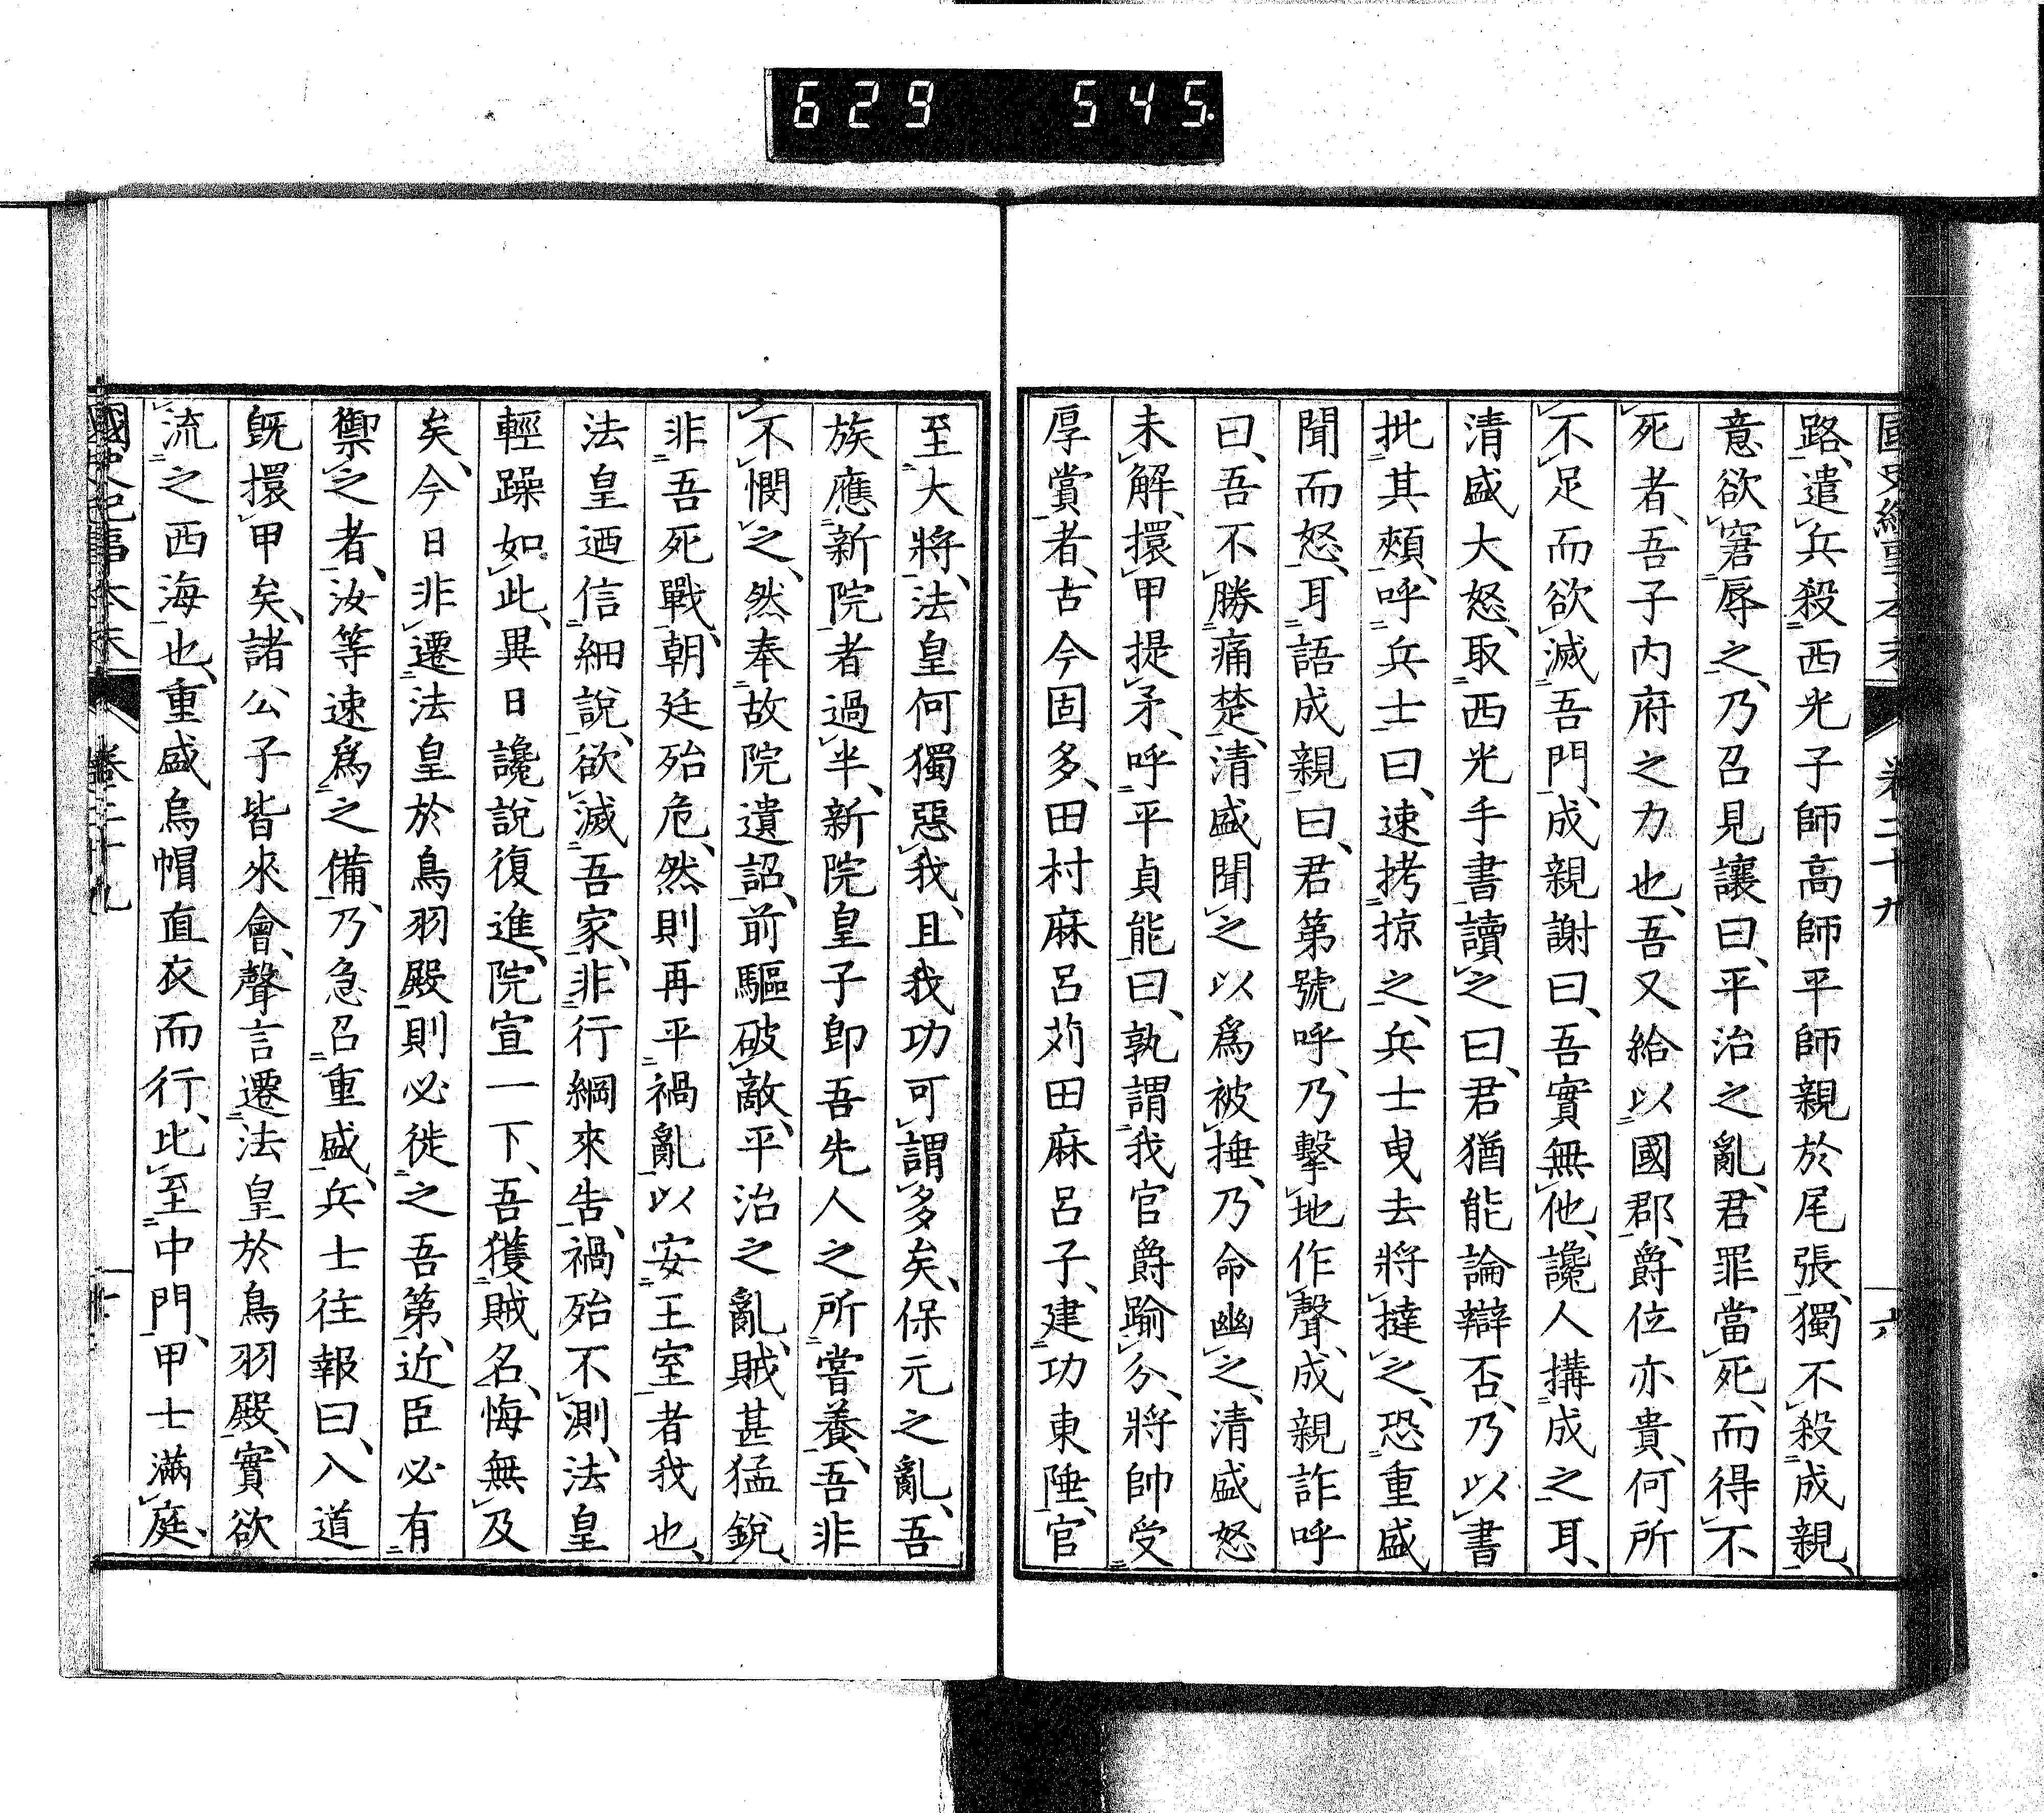 629 545
路、遣兵殺西光子師高師平師親於尾張、獨不殺成親、
意欲窘辱之、乃召見讓曰、平治之亂、君罪當死、而得不
死者、吾子内府之力也、吾又給以國郡、爵位亦貴、何所
不足而欲滅吾門、成親謝曰、吾實無他、讒人搆成之耳、
清盛大怒、取西光手書讀之曰、君猶能論辯否、乃以書
批其頰、呼兵士曰、速拷掠之、兵士曳去將撻之、恐重盛
聞而怒、耳語成親曰、君第號呼、乃擊地作聲、成親詐呼
曰、吾不勝痛楚、清盛聞之以爲被捶、乃命幽之、清盛怒
未解、擐甲提矛、呼平貞能曰、孰謂我官爵踰分、將帥受
厚賞者、古今固多、田村麻呂苅田麻呂子、建功東陲、官
至大將、法皇何獨惡我、且我功可謂多矣、保元之亂、吾
族應新院者過半、新院皇子卽吾先人之所嘗養、吾非
不憫之、然奉故院遺詔、前驅破敵、平治之亂、賊甚猛銳、
非吾死戰、朝廷殆危、然則再平禍亂以安王室者我也、
法皇迺信細說、欲滅吾家、非行綱來告、禍殆不測、法皇
輕躁如此、異日讒說復進、院宣一下、吾獲賊名、悔無及
矣、今日非遷法皇於鳥羽殿、則必徙之吾第、近臣必有
禦之者、汝等速爲之備、乃急召重盛、兵士往報曰、入道
旣擐甲矣、諸公子皆來會、聲言遷法皇於鳥羽殿、實欲
流之西海也、重盛烏帽直衣而行、比至中門、甲士滿庭、
國史紀事本末 卷二十九